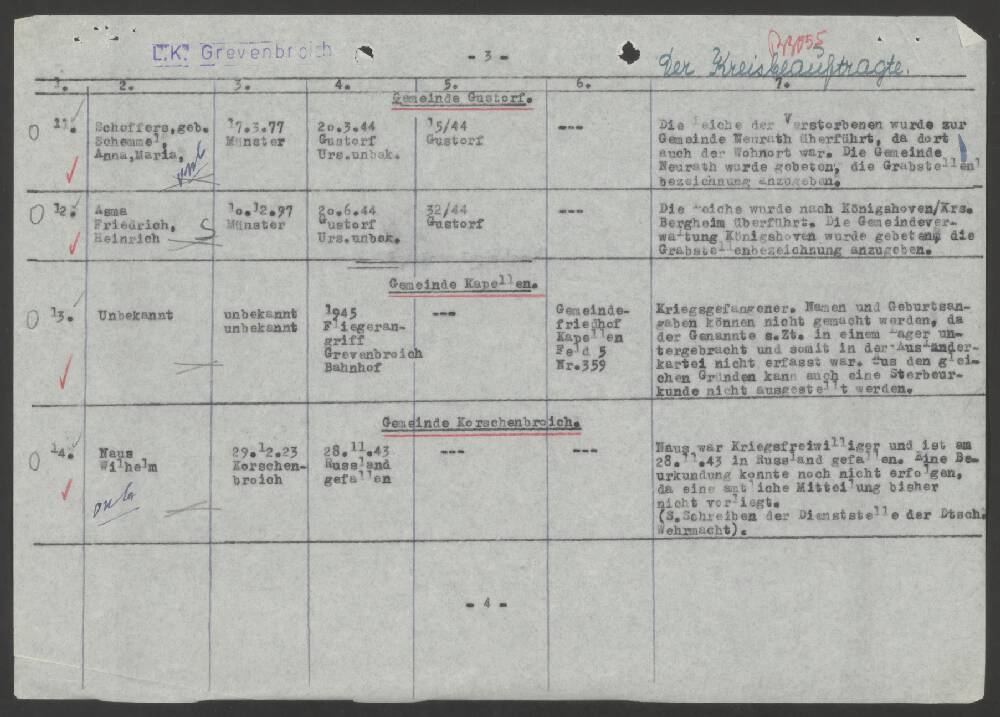 L.K. Grevenbroich
- 3 -
Der Kreisbeauftragte.
1. 2. 3. 4. 5. 6. 7.
Gemeinde Gustorf.
11. Schoffers, geb. Schemmel, Anna, Maria,
17.3.77
Münster
20.3.44
Gustorf
Urs.unbek.
15/44
Gustorf
---
Die Leiche der Verstorbenen wurde zur
Gemeinde Neurath überführt, da dort
auch der Wohnort war. Die Gemeinde
Neurath wurde gebeten, die Grabstellen
bezeichnung anzugeben.
12. Asma
Friedrich,
Heinrich
10.12.97
Münster
20.6.44
Gustorf
Urs.unbek.
32/44
Gustorf
---
Die Leiche wurde nach Königshoven/Krs.
Bergheim überführt. Die Gemeindever-
waltung Königshoven wurde gebeten, die
Grabstellenbezeichnung anzugeben.
Gemeinde Kapellen.
13. Unbekannt
unbekannt
unbekannt
1945
Fliegeran-
griff
Grevenbroich
Bahnhof
---
Gemeinde-
friedhof
Kapellen
Feld 5
Nr.359
Kriegsgefangener. Namen und Geburtsan-
gaben können nicht gemacht werden, da
der Genannte s.Zt. in einem Lager un-
tergebracht und somit in der Ausländer-
kartei nicht erfasst war. Aus den glei-
chen Gründen kann auch eine Sterbeur-
kunde nicht ausgestellt werden.
Gemeinde Korschenbroich.
14. Naus
Wilhelm
29.12.23
Korschen-
broich
28.11.43
Russland
gefallen
---
---
Naus war Kriegsfreiwilliger und ist am
28.11.43 in Russland gefallen. Eine Be-
urkundung konnte noch nicht erfolgen,
da eine amtliche Mitteilung bisher
nicht vorliegt.
(S.Schreiben der Dienststelle der Dtsch.
Wehrmacht).
- 4 -